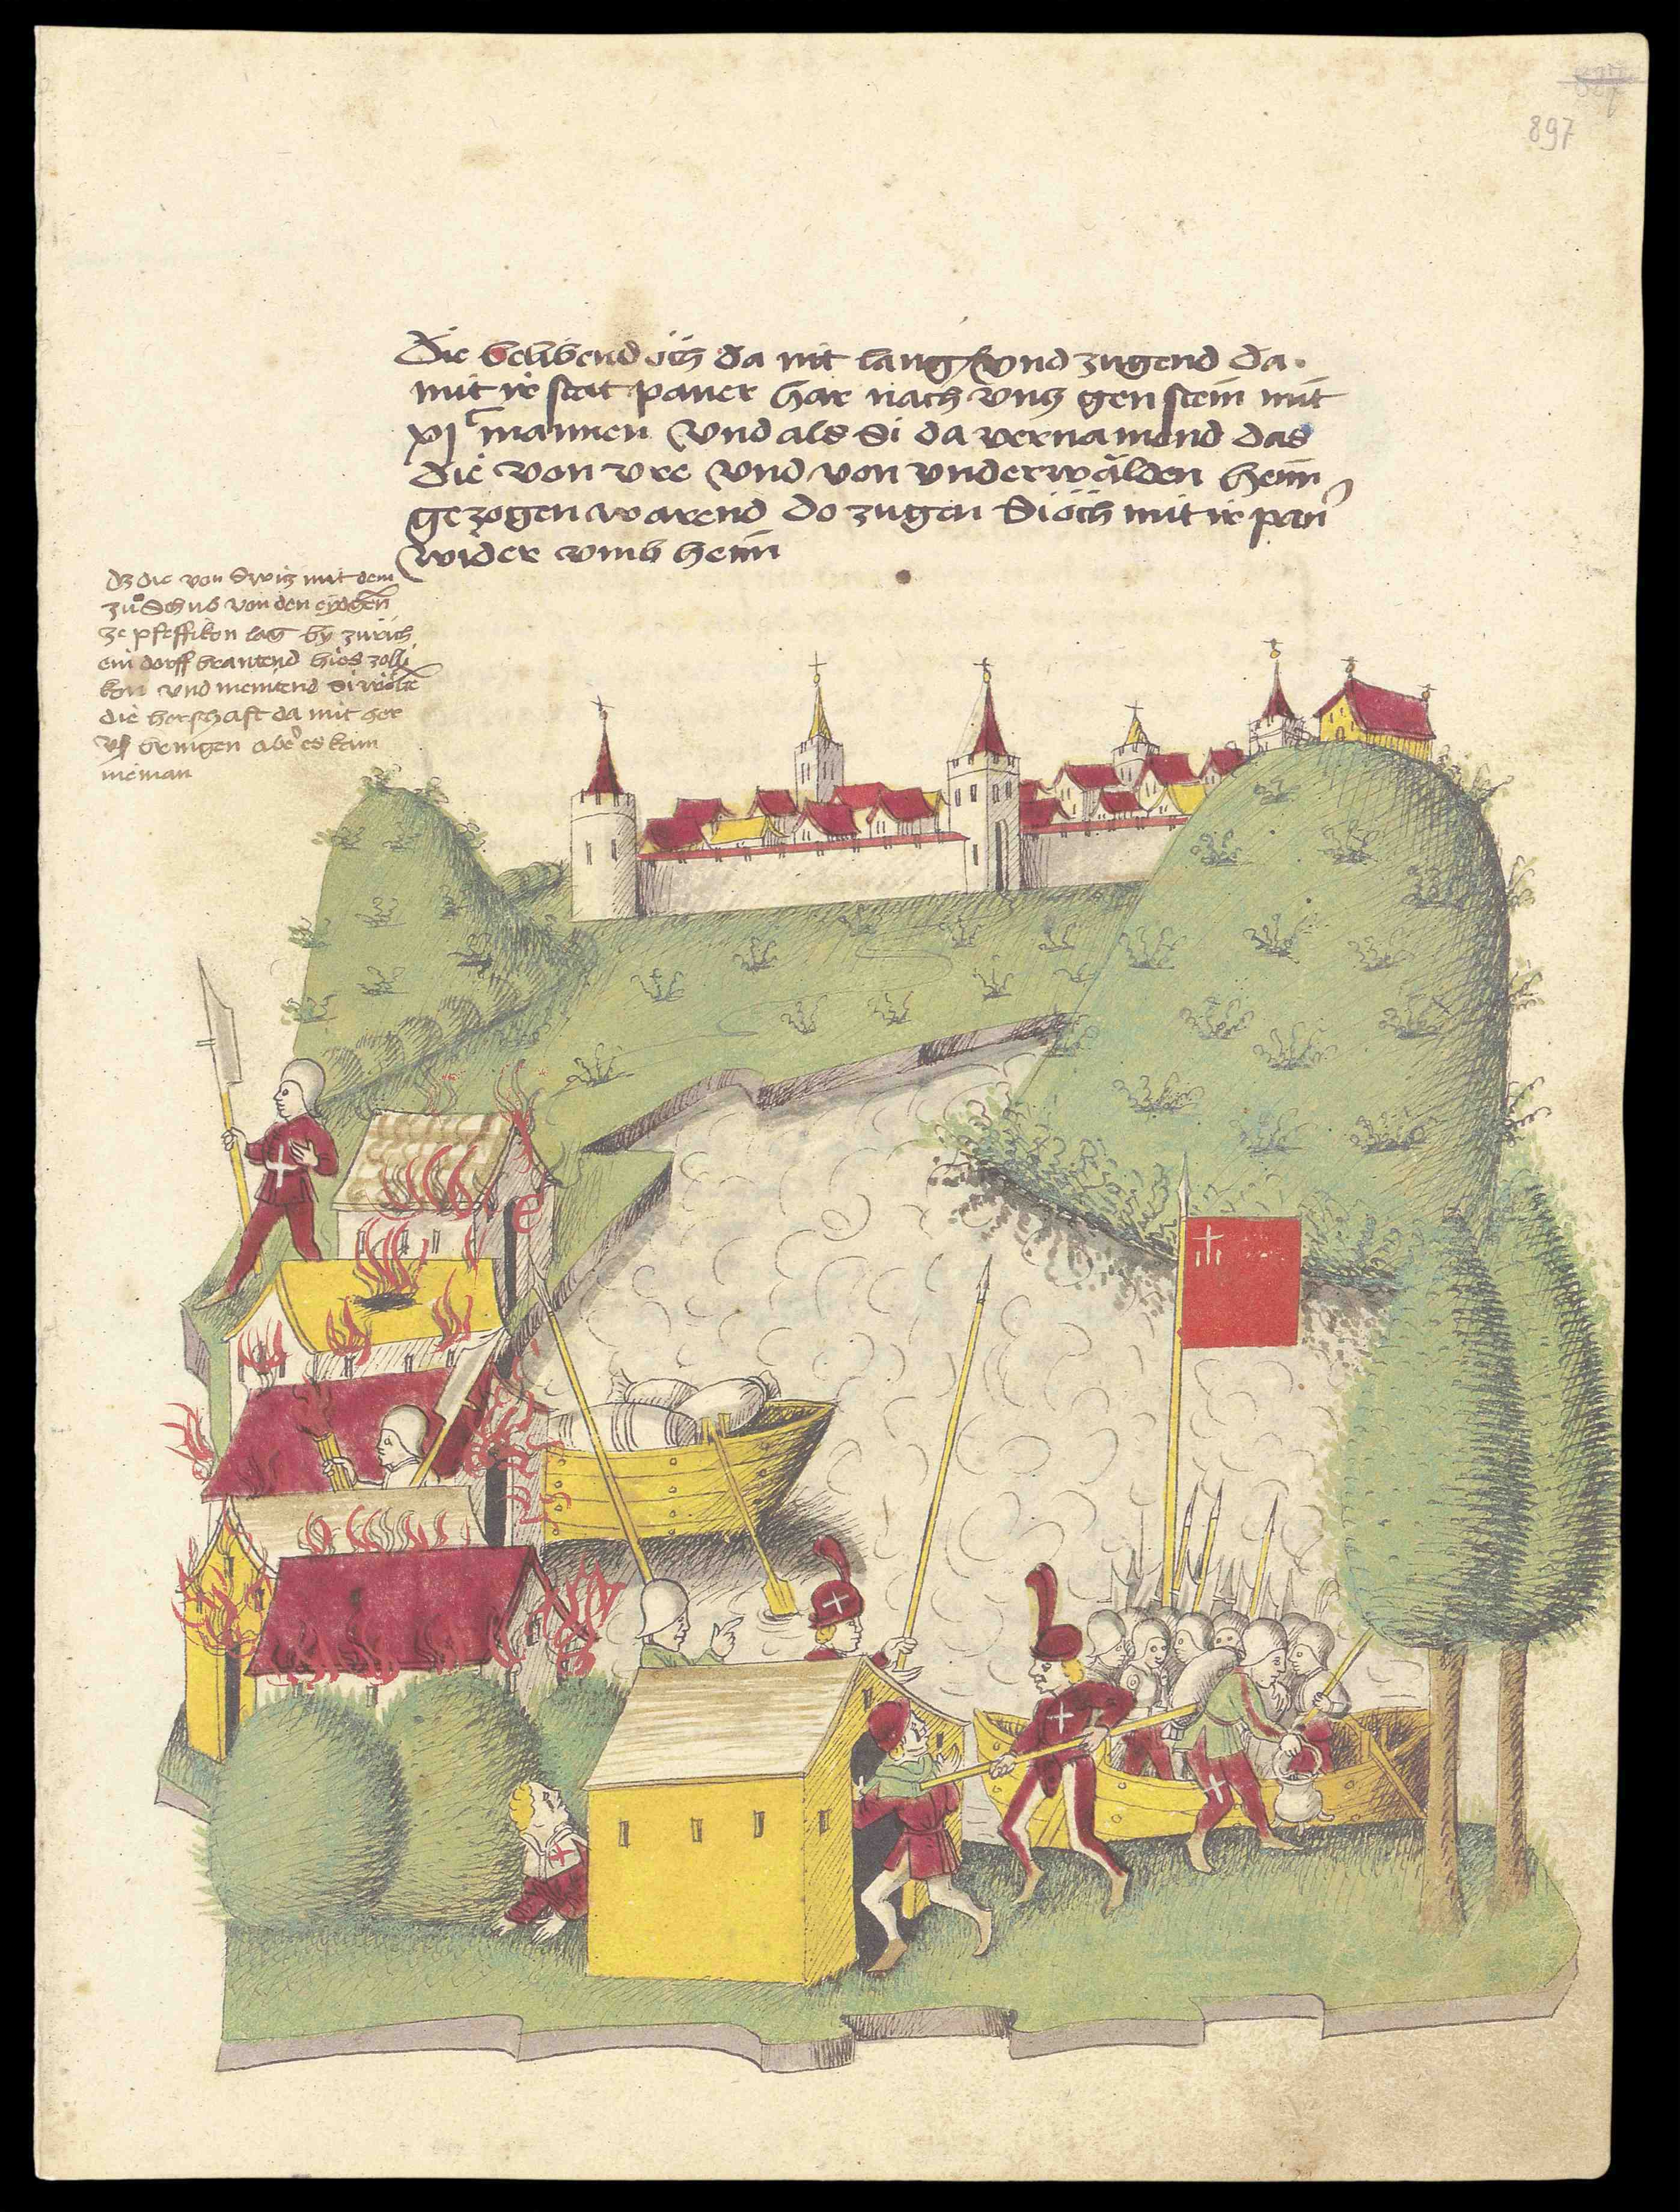 897
Die belibend öch da nit lang / vnd zugend da
mit ir stat paner har nach vntz gen stein mit
xjc mannen Vnd als Si da vernamend das
die von vre Vnd von vnderwälden heim
gezogen warend do zugen Si öch mit ir pan
wider vmb heim
dz die von Switz mit dem
zuͦ Schub von den eydgen
ze pfeffikon lag by zürich
ein dorff brantend hies zolli
kon vnd meintend si wölte
die herschaft da mit her
vß bringen aber es kam
nieman